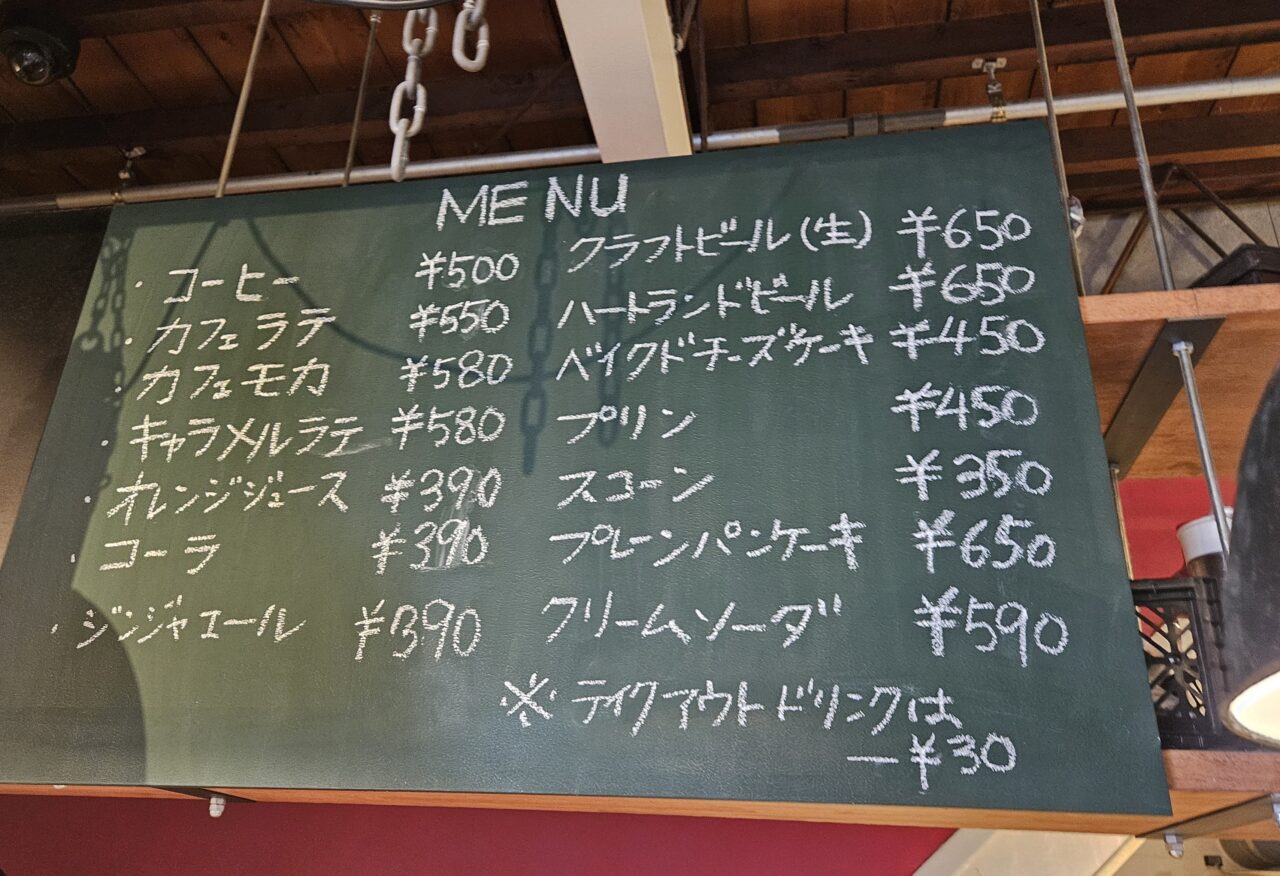 MENU
・コーヒー ¥500
・カフェラテ ¥550
・カフェモカ ¥580
・キャラメルラテ ¥580
・オレンジジュース ¥390
・コーラ ¥390
・ジンジャエール ¥390
クラフトビール(生) ¥650
ハートランドビール ¥650
ベイクドチーズケーキ ¥450
プリン ¥450
スコーン ¥350
プレーンパンケーキ ¥650
クリームソーダ ¥590
※テイクアウトドリンクは
－¥30